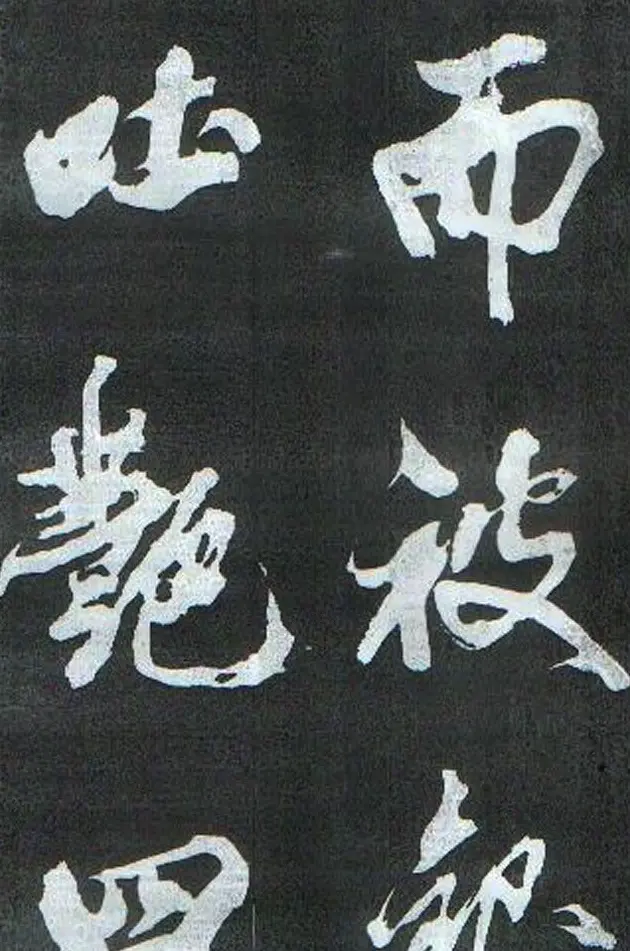 而被
吐艷四